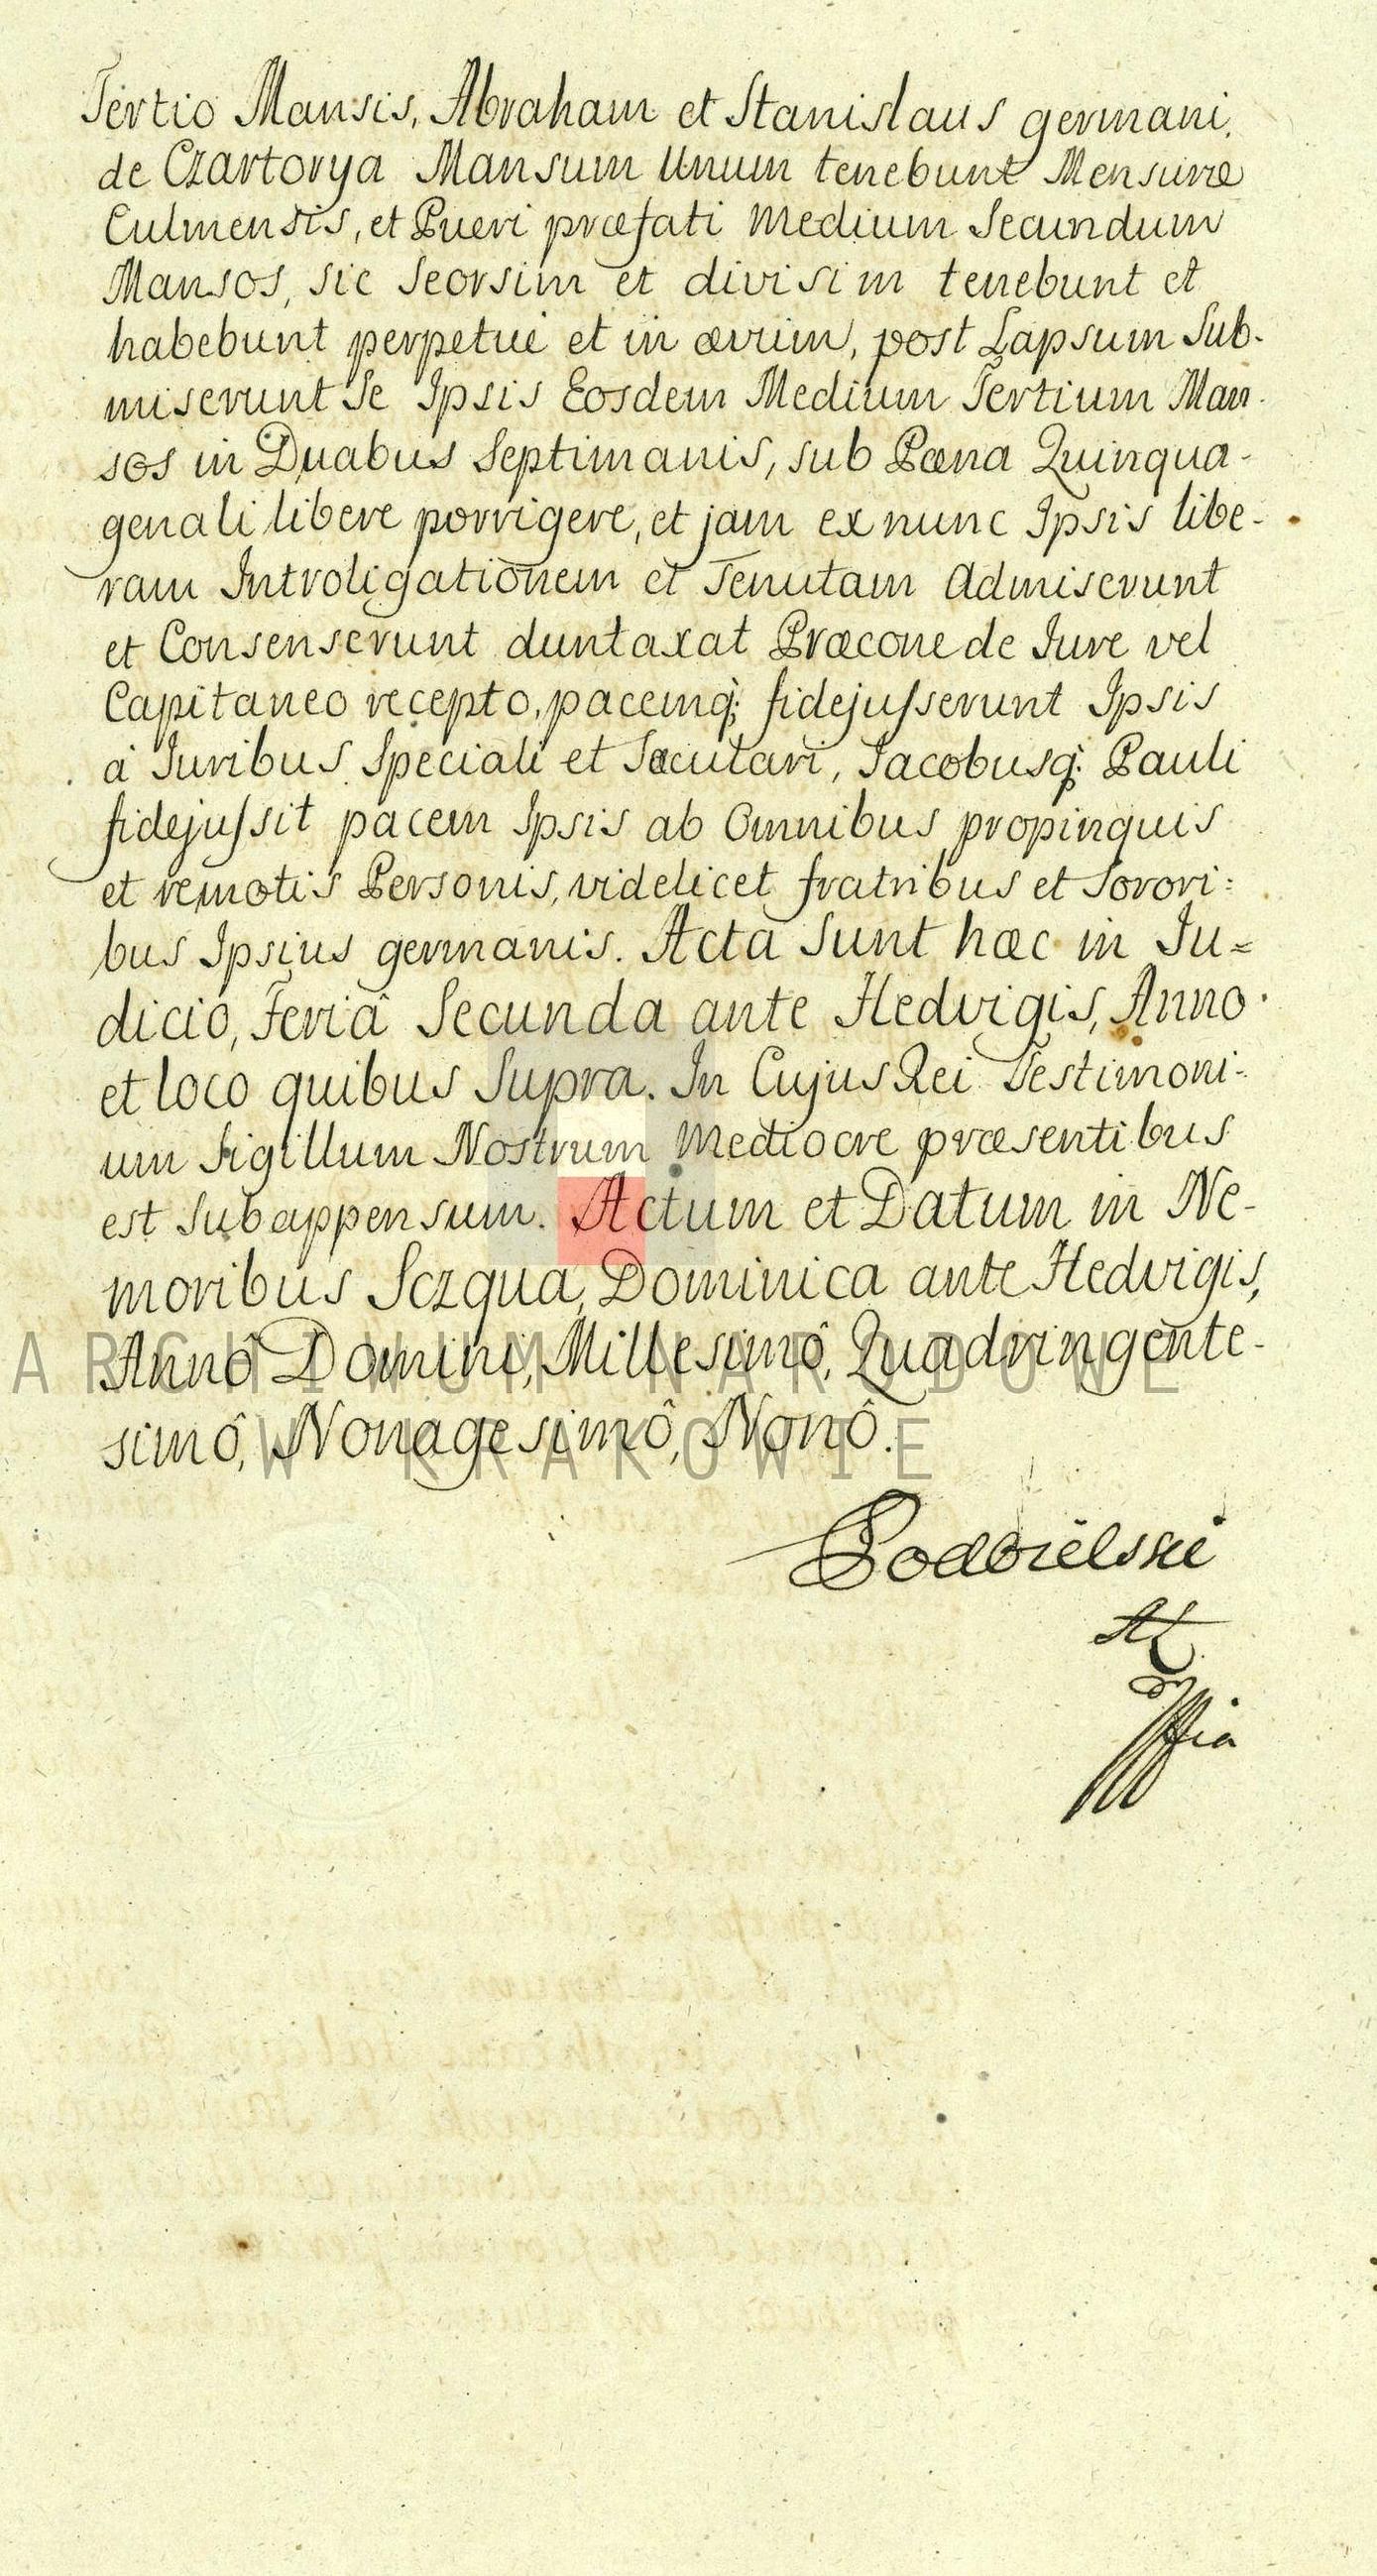 Tertio Mansis, Abraham et Stanislaus germani,
de Czartorya Mansum Unum tenebunt Mensuræ
Culmensis, et Pueri præfati Medium Secundum
Mansos, sic Seorsim et divisim tenebunt et
habebunt perpetue et in ævum, post Lapsum Sub-
miserunt Se Ipsis Eosdem Medium Tertium Man-
sos in Duabus Septimanis, sub Pæna Quinqua-
genali libere porrigere, et jam ex nunc Ipsis libe-
ram Introligationem et Tenutam Admiserunt
et Consenserunt duntaxat Præcone de Jure vel
Capitaneo recepto, pacemq; fidejusserunt Ipsis
à Juribus Speciali et Sæculari, Jacobusq; Pauli
fidejussit pacem Ipsis ab Omnibus propinquis
et remotis Personis, videlicet fratribus et Sorori=
bus Ipsius germanis. Acta Sunt hæc in Ju=
dicio, Feriâ Secunda ante Hedvigis, Anno
et loco quibus Supra. In Cujus Rei Testimoni-
um Sigillum Nostrum Mediocre præsentibus
est Subappensum. Actum et Datum in Ne-
moribus Sczqua, Dominica ante Hedvigis,
Annô Domini, Millesimô, Quadringente-
simô, Nonagesimô, Nonô.
ARCHIWUM NARODOWE
W KRAKOWIE
Podbielski